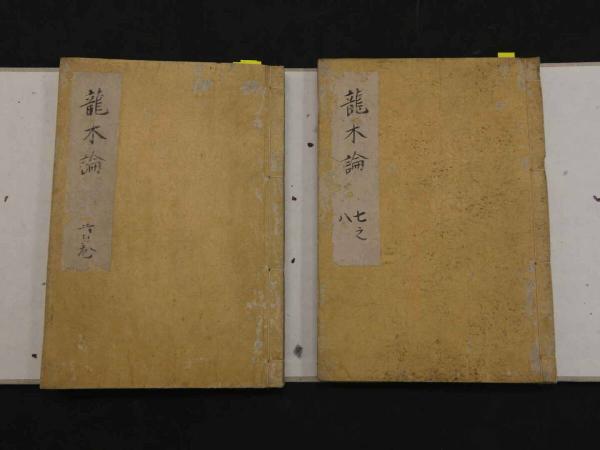 龍木論
首巻
龍木論
七之
八